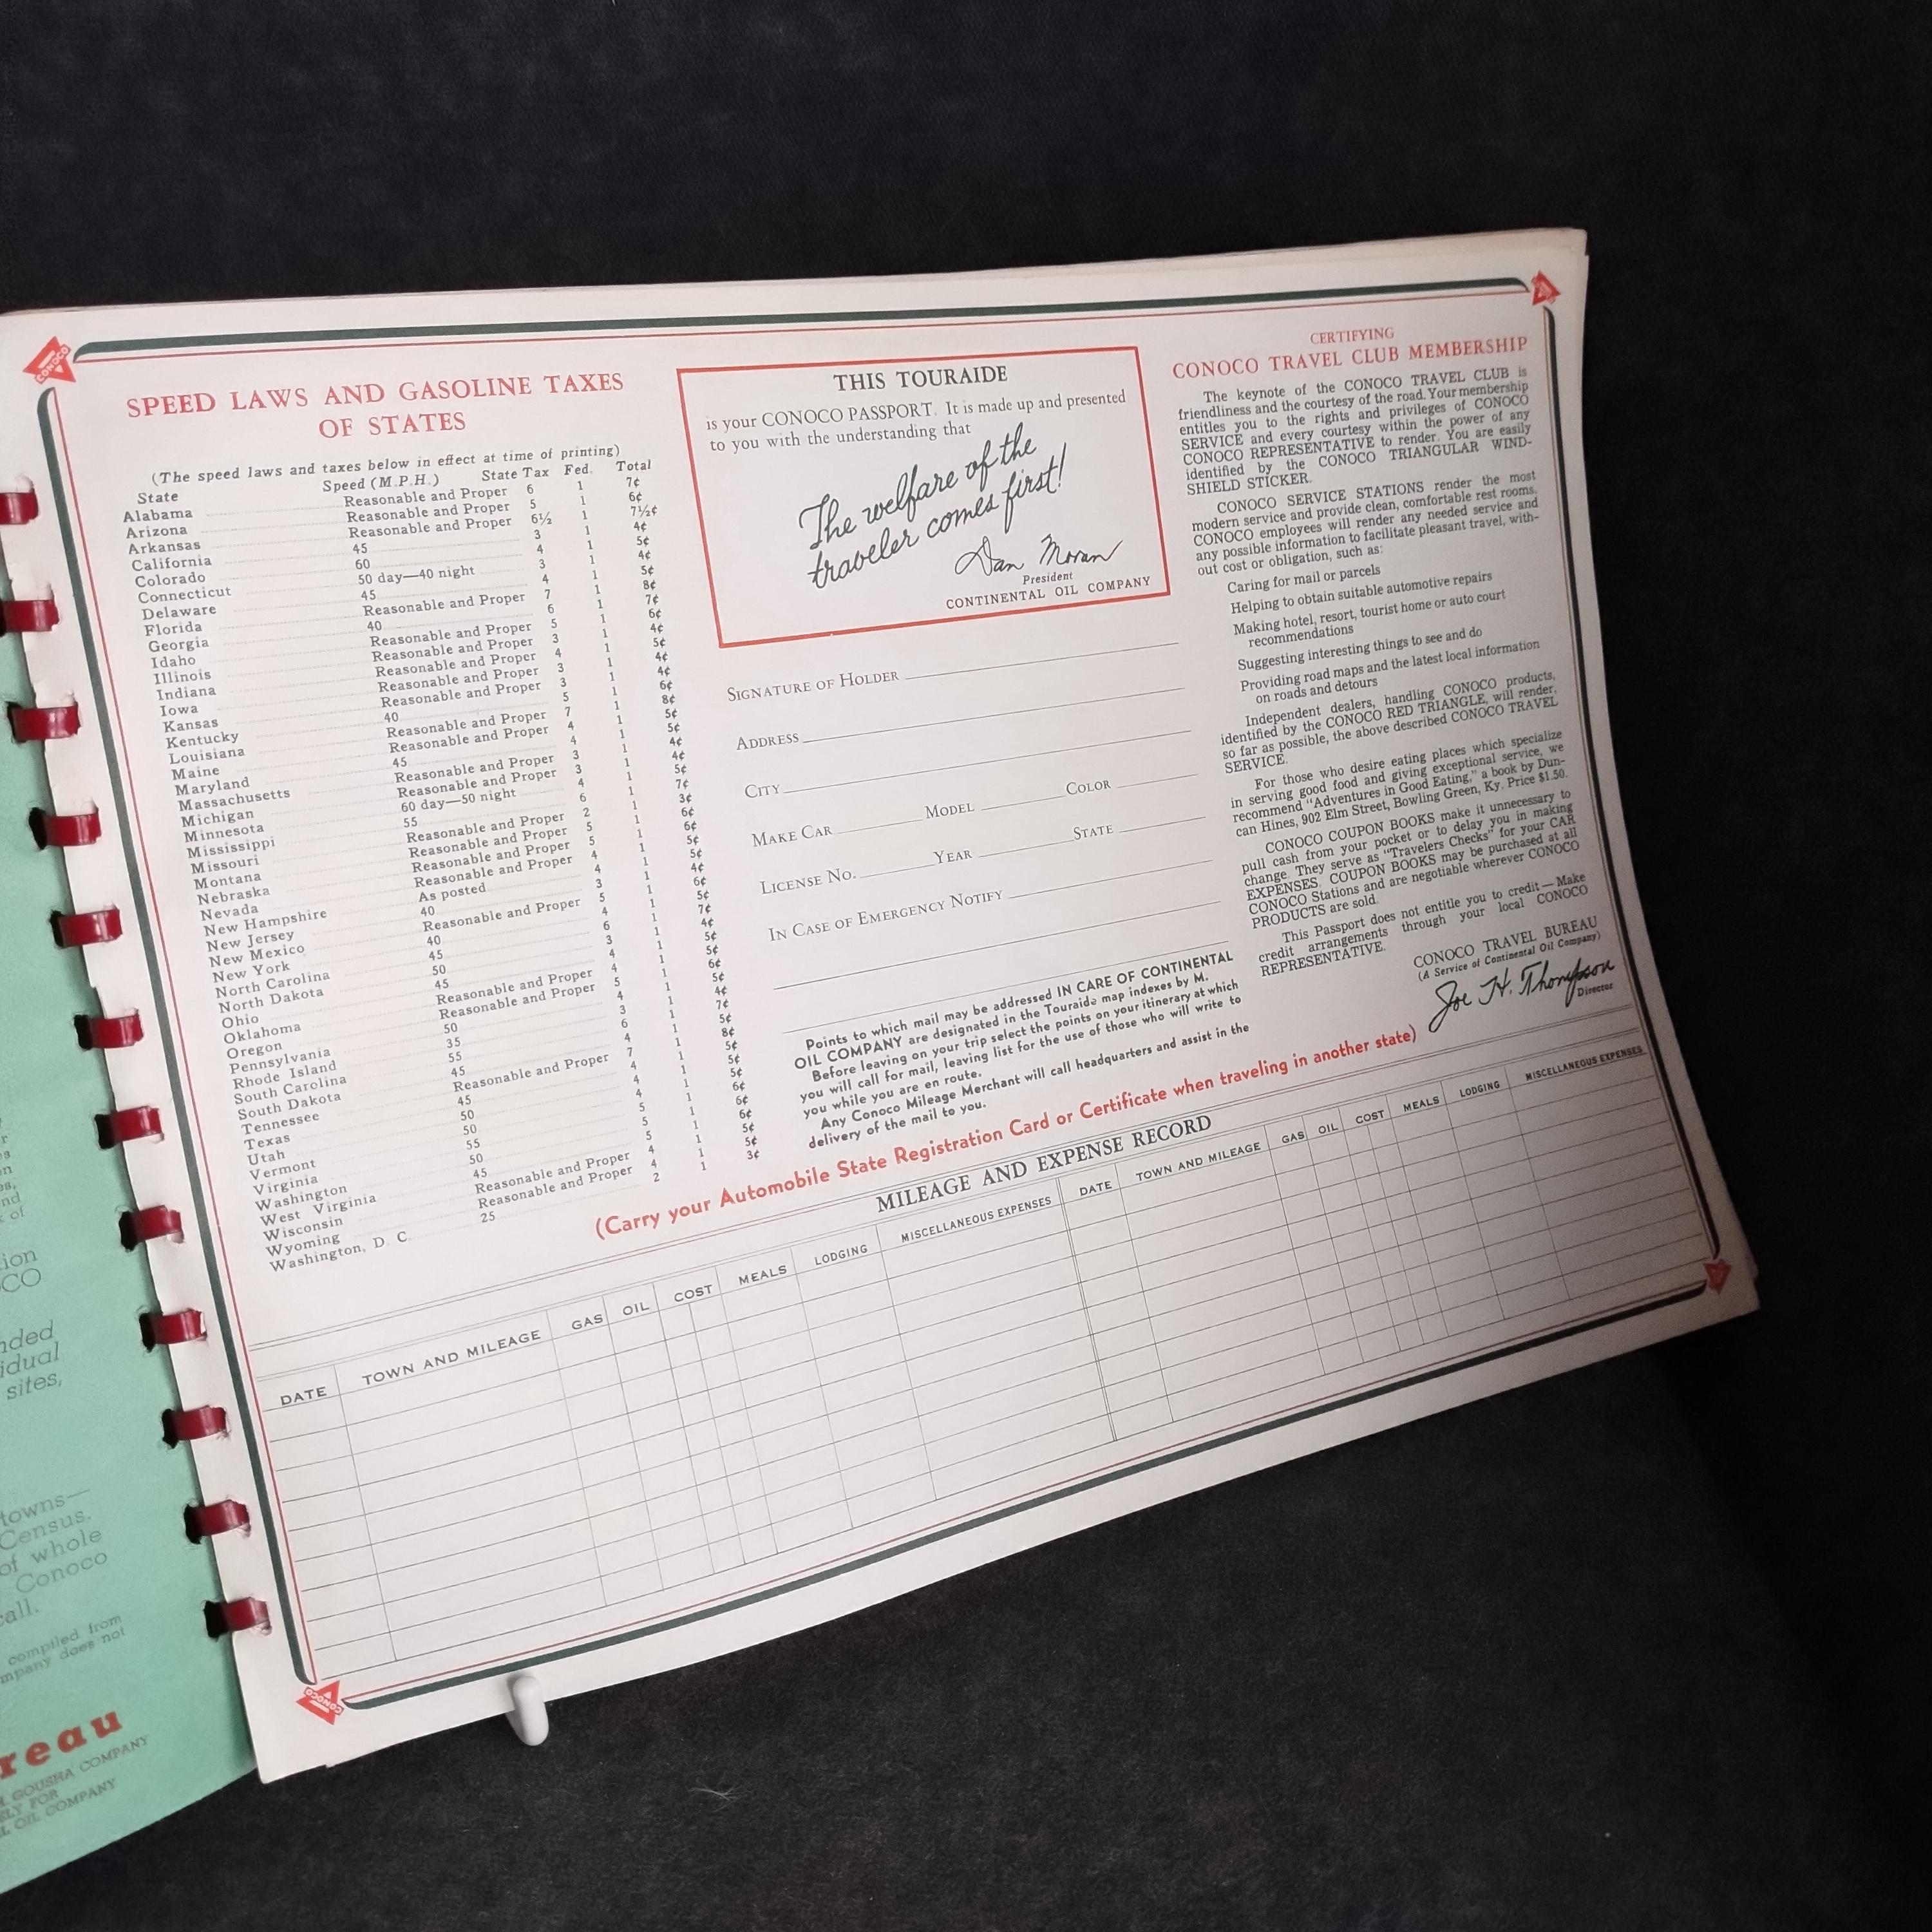 SPEED LAWS AND GASOLINE TAXES
OF STATES
(The speed laws and taxes below in effect at time of printing)
State Speed (M.P.H.) State Tax Fed. Total
Alabama Reasonable and Proper 6 1 7¢
Arizona Reasonable and Proper 5 1 6¢
Arkansas Reasonable and Proper 6½ 1 7½¢
California 45 3 1 4¢
Colorado 60 4 1 5¢
Connecticut 50 day—40 night 3 1 4¢
Delaware 45 4 1 5¢
Florida Reasonable and Proper 7 1 8¢
Georgia 40 6 1 7¢
Idaho Reasonable and Proper 5 1 6¢
Illinois Reasonable and Proper 3 1 4¢
Indiana Reasonable and Proper 4 1 5¢
Iowa Reasonable and Proper 3 1 4¢
Kansas Reasonable and Proper 3 1 4¢
Kentucky 40 5 1 6¢
Louisiana Reasonable and Proper 7 1 8¢
Maine Reasonable and Proper 4 1 5¢
Maryland 45 4 1 5¢
Massachusetts Reasonable and Proper 3 1 4¢
Michigan Reasonable and Proper 3 1 4¢
Minnesota 60 day—50 night 4 1 5¢
Mississippi 55 6 1 7¢
Missouri Reasonable and Proper 2 1 3¢
Montana Reasonable and Proper 5 1 6¢
Nebraska Reasonable and Proper 5 1 6¢
Nevada Reasonable and Proper 4 1 5¢
New Hampshire As posted 4 1 5¢
New Jersey 40 3 1 4¢
New Mexico Reasonable and Proper 5 1 6¢
New York 40 4 1 5¢
North Carolina 45 6 1 7¢
North Dakota 50 3 1 4¢
Ohio 45 4 1 5¢
Oklahoma Reasonable and Proper 4 1 5¢
Oregon Reasonable and Proper 5 1 6¢
Pennsylvania 50 4 1 5¢
Rhode Island 35 3 1 4¢
South Carolina 55 6 1 7¢
South Dakota 45 4 1 5¢
Tennessee Reasonable and Proper 7 1 8¢
Texas 45 4 1 5¢
Utah 50 4 1 5¢
Vermont 50 4 1 5¢
Virginia 55 5 1 6¢
Washington 50 5 1 6¢
West Virginia 45 5 1 6¢
Wisconsin Reasonable and Proper 4 1 5¢
Wyoming Reasonable and Proper 4 1 5¢
Washington, D. C. 25 2 1 3¢
THIS TOURAIDE
is your CONOCO PASSPORT. It is made up and presented
to you with the understanding that
The welfare of the
traveler comes first!
Dan Moran
President
CONTINENTAL OIL COMPANY
SIGNATURE OF HOLDER
ADDRESS
CITY
MAKE CAR MODEL COLOR
LICENSE NO. YEAR STATE
IN CASE OF EMERGENCY NOTIFY
Points to which mail may be addressed IN CARE OF CONTINENTAL
OIL COMPANY are designated in the Touraide map indexes by M.
Before leaving on your trip select the points on your itinerary at which
you will call for mail, leaving list for the use of those who will write to
you while you are en route.
Any Conoco Mileage Merchant will call headquarters and assist in the
delivery of the mail to you.
CERTIFYING
CONOCO TRAVEL CLUB MEMBERSHIP
The keynote of the CONOCO TRAVEL CLUB is
friendliness and the courtesy of the road. Your membership
entitles you to the rights and privileges of CONOCO
SERVICE and every courtesy within the power of any
CONOCO REPRESENTATIVE to render. You are easily
identified by the CONOCO TRIANGULAR WIND-
SHIELD STICKER.
CONOCO SERVICE STATIONS render the most
modern service and provide clean, comfortable rest rooms.
CONOCO employees will render any needed service and
any possible information to facilitate pleasant travel, with-
out cost or obligation, such as:
Caring for mail or parcels
Helping to obtain suitable automotive repairs
Making hotel, resort, tourist home or auto court
recommendations
Suggesting interesting things to see and do
Providing road maps and the latest local information
on roads and detours
Independent dealers, handling CONOCO products,
identified by the CONOCO RED TRIANGLE, will render,
so far as possible, the above described CONOCO TRAVEL
SERVICE.
For those who desire eating places which specialize
in serving good food and giving exceptional service, we
recommend "Adventures in Good Eating," a book by Dun-
can Hines, 902 Elm Street, Bowling Green, Ky. Price $1.50.
CONOCO COUPON BOOKS make it unnecessary to
pull cash from your pocket or to delay you in making
change. They serve as "Travelers Checks" for your CAR
EXPENSES. COUPON BOOKS may be purchased at all
CONOCO Stations and are negotiable wherever CONOCO
PRODUCTS are sold.
This Passport does not entitle you to credit — Make
credit arrangements through your local CONOCO
REPRESENTATIVE.
CONOCO TRAVEL BUREAU
(A Service of Continental Oil Company)
Joe H. Thompson
Director
(Carry your Automobile State Registration Card or Certificate when traveling in another state)
MILEAGE AND EXPENSE RECORD
DATE TOWN AND MILEAGE GAS OIL COST MEALS LODGING MISCELLANEOUS EXPENSES DATE TOWN AND MILEAGE GAS OIL COST MEALS LODGING MISCELLANEOUS EXPENSES
CONOCO
CONOCO
idual
sites,
towns—
Census.
of whole
Conoco
call.
compiled from
does not
reau
GOUSHA COMPANY
FOR
OIL COMPANY